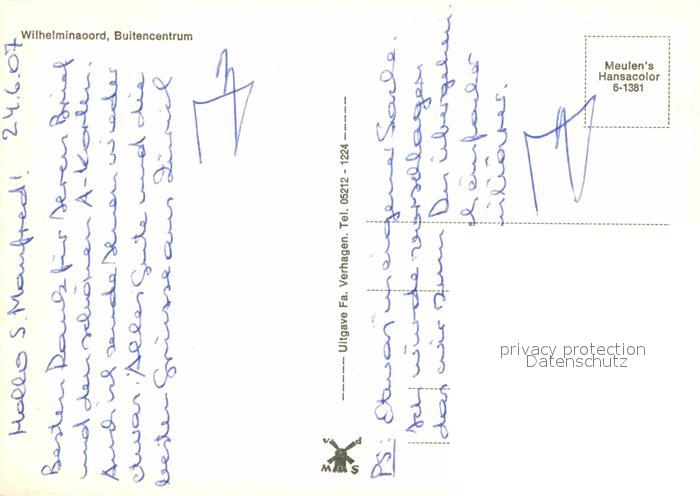 Wilhelminaoord, Buitencentrum
Hallo S. Manfred! 24.6.07
Besten Dank für deren Brief
und den schönen A-Karten.
Auch ich sende Ihnen wieder
etwas. Alles Gute und die
besten Grüsse aus Zürich
Uitgave Fa. Verhagen. Tel. 05212 - 1224
v d
M S
PS: Etwas in eigener Sache.
Ich würde vorschlagen
das wir zum Du übergehen.
einfacher
Meulen's
Hansacolor
6-1381
privacy protection
Datenschutz